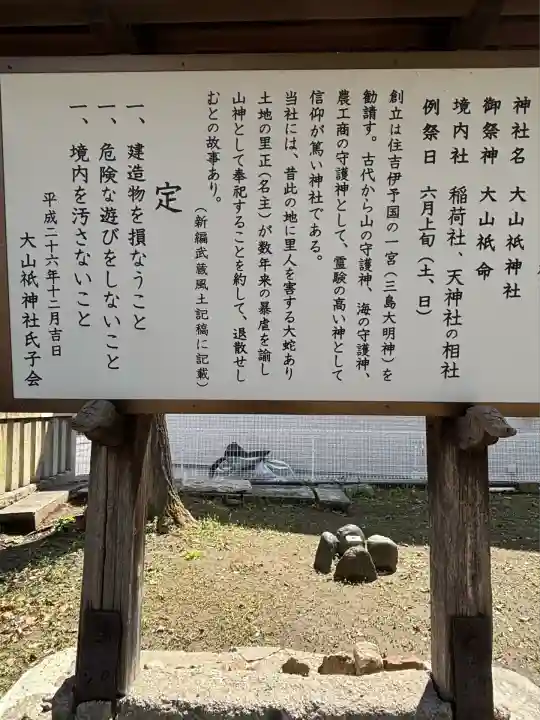 神社名 大山祇神社
御祭神 大山祇命
境内社 稲荷社、天神社の相社
例祭日 六月上旬(土、日)
創立は住吉伊予国の一宮(三島大明神)を
勧請す。古代から山の守護神、海の守護神、
農工商の守護神として、霊験の高い神として
信仰が篤い神社である。
当社には、昔此の地に里人を害する大蛇あり
土地の里正(名主)が数年来の暴虐を諭し
山神として奉祀することを約して、退散せし
むとの故事あり。
(新編武蔵風土記稿に記載)
定
一、建造物を損なうこと
一、危険な遊びをしないこと
一、境内を汚さないこと
平成二十六年十二月吉日
大山祇神社氏子会